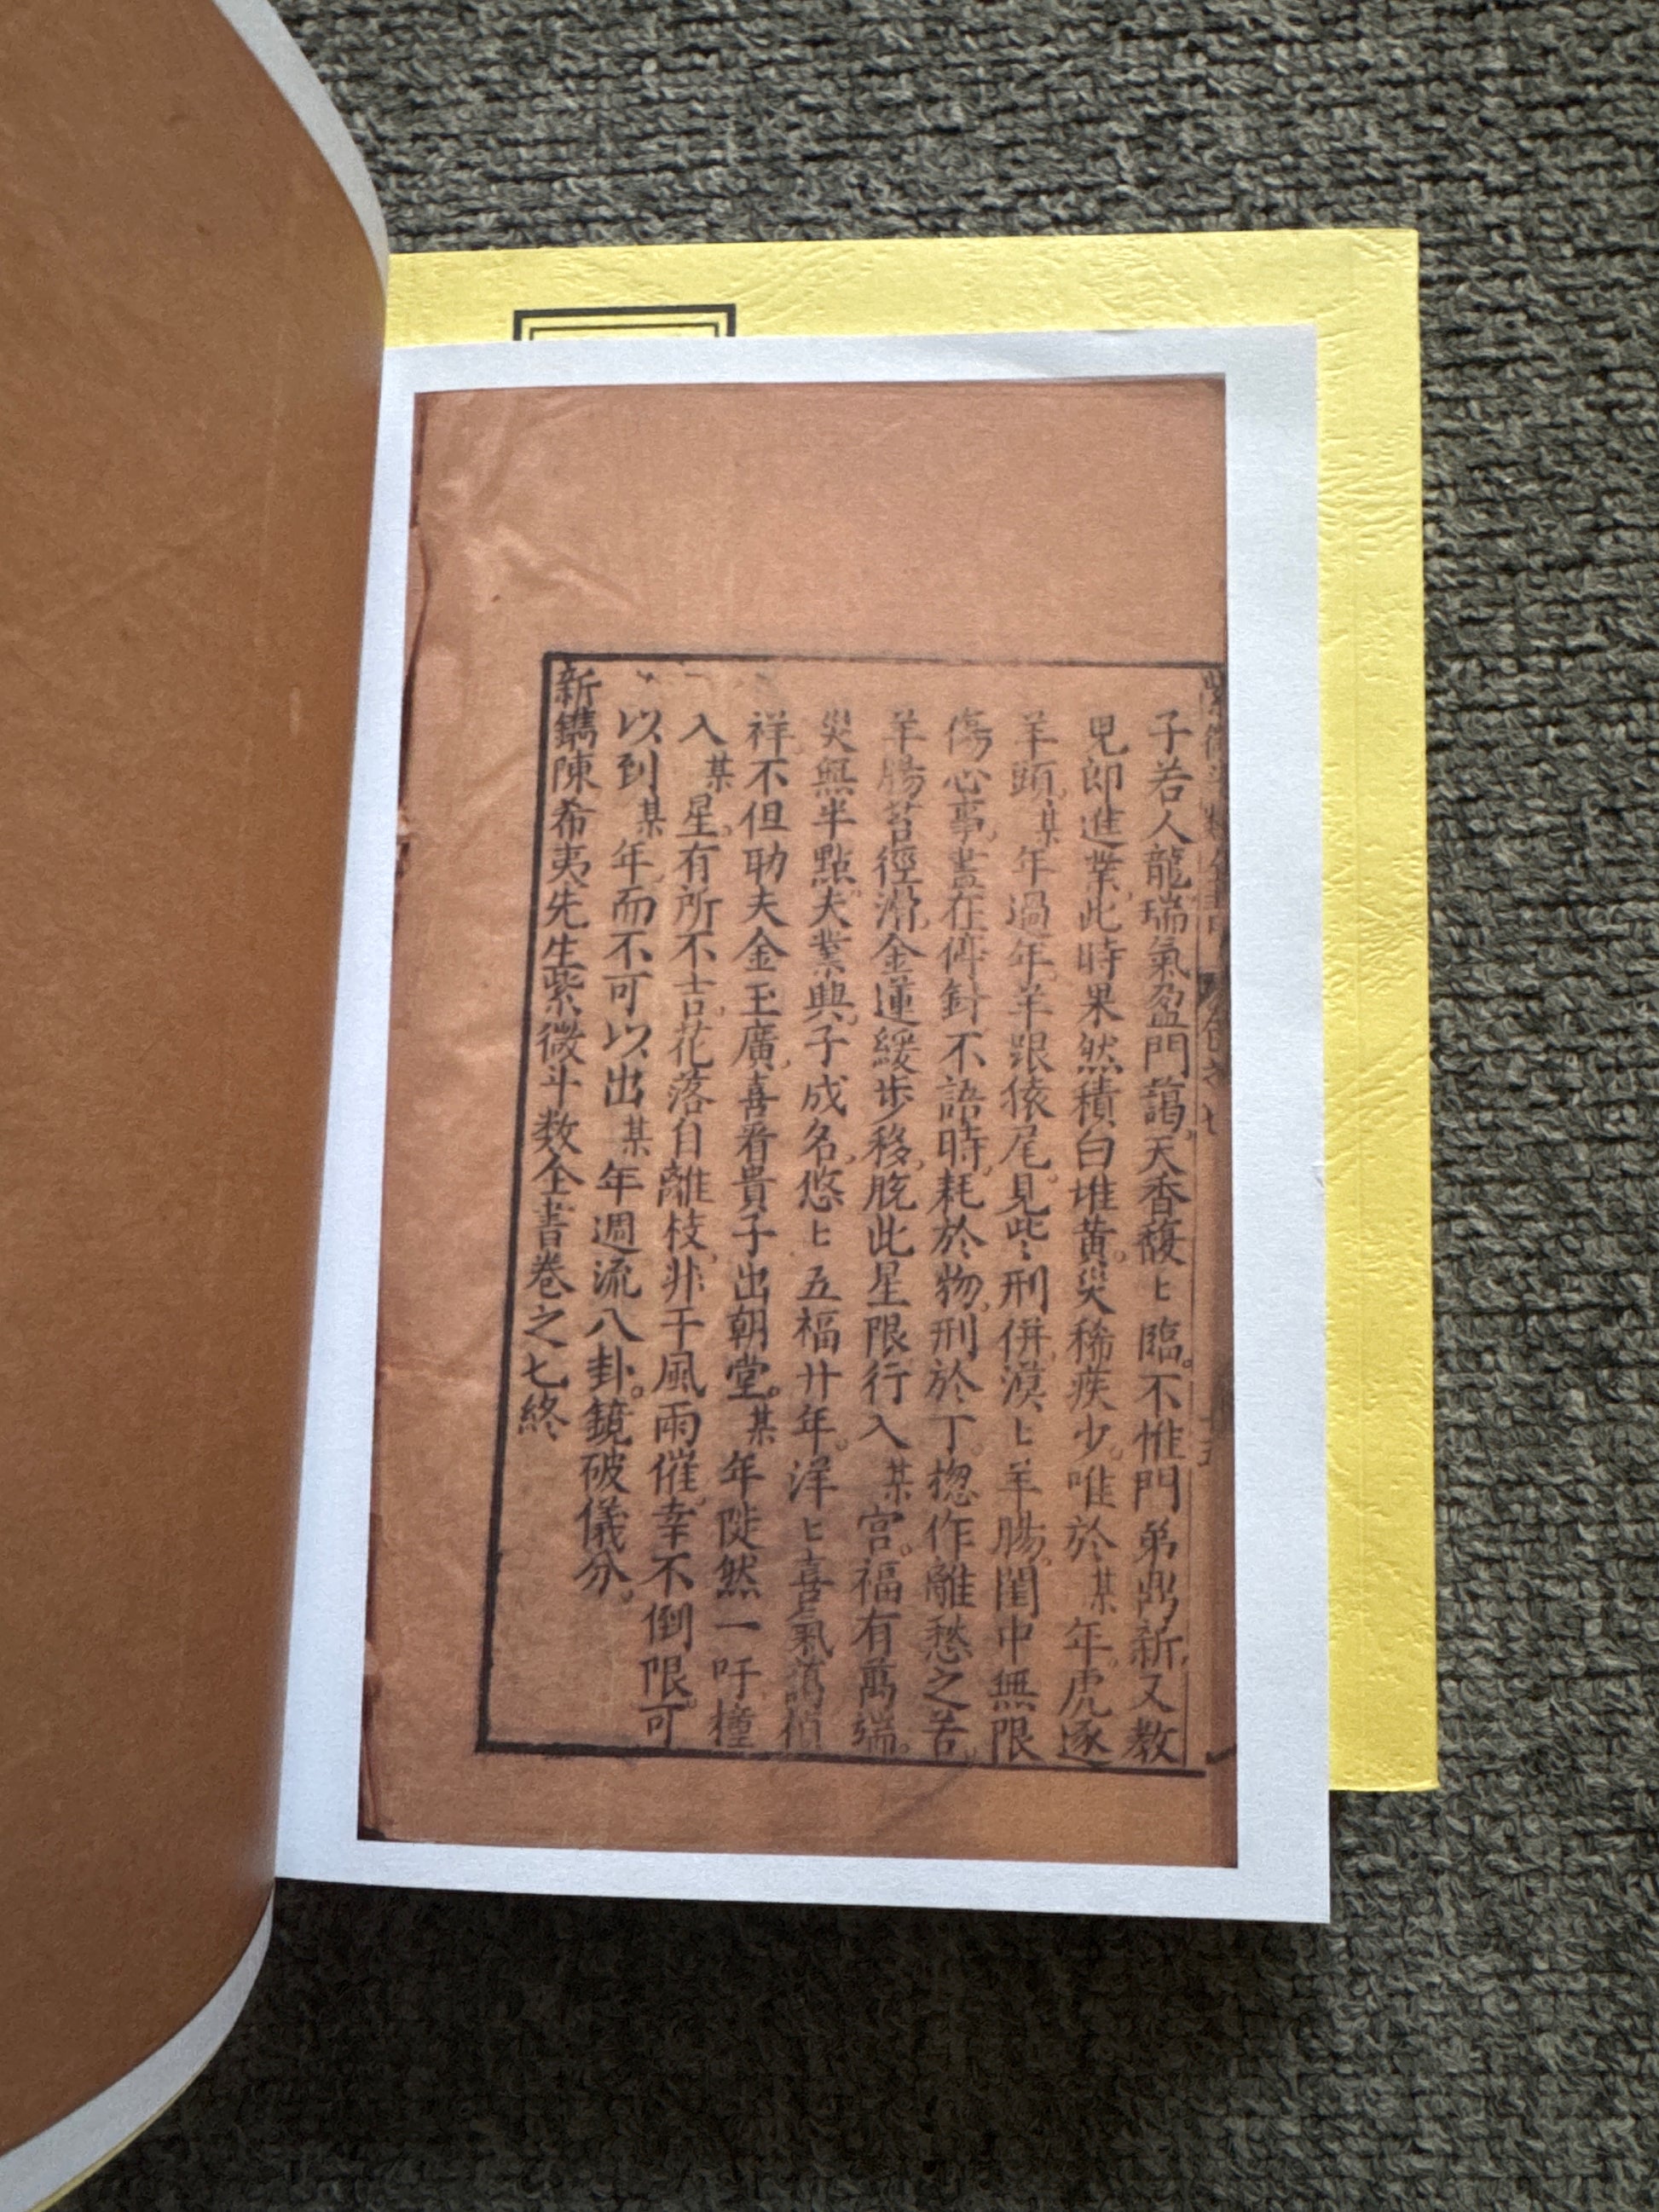 子若人龍瑞氣盈門藹天香馥〻臨。不惟門弟鼎新又教
兒郎進業此時果然積白堆黃。災稀疾少唯於某年虎逐
羊頭。某年過年。羊跟猿尾。見些刑併漠〻羊腸。閨中無限
傷心事。盡在停針不語時。耗於物。刑於丁。揔作離愁之苦。
羊腸苔徑滑。金蓮緩步移。脫此星限行入某宮。福有萬端。
災無半點。夫業興。子成名。悠〻五福廿年。洋〻喜氣
祥不但助夫金玉廣。喜看貴子出朝堂。某年陡然一吁撞
入某星。有所不吉。花落自離枝。非干風雨催。幸不倒限。可
以到某年。而不可以出某年週流八卦。鏡破儀分。
新鐫陳希夷先生紫微斗数全書卷之七終